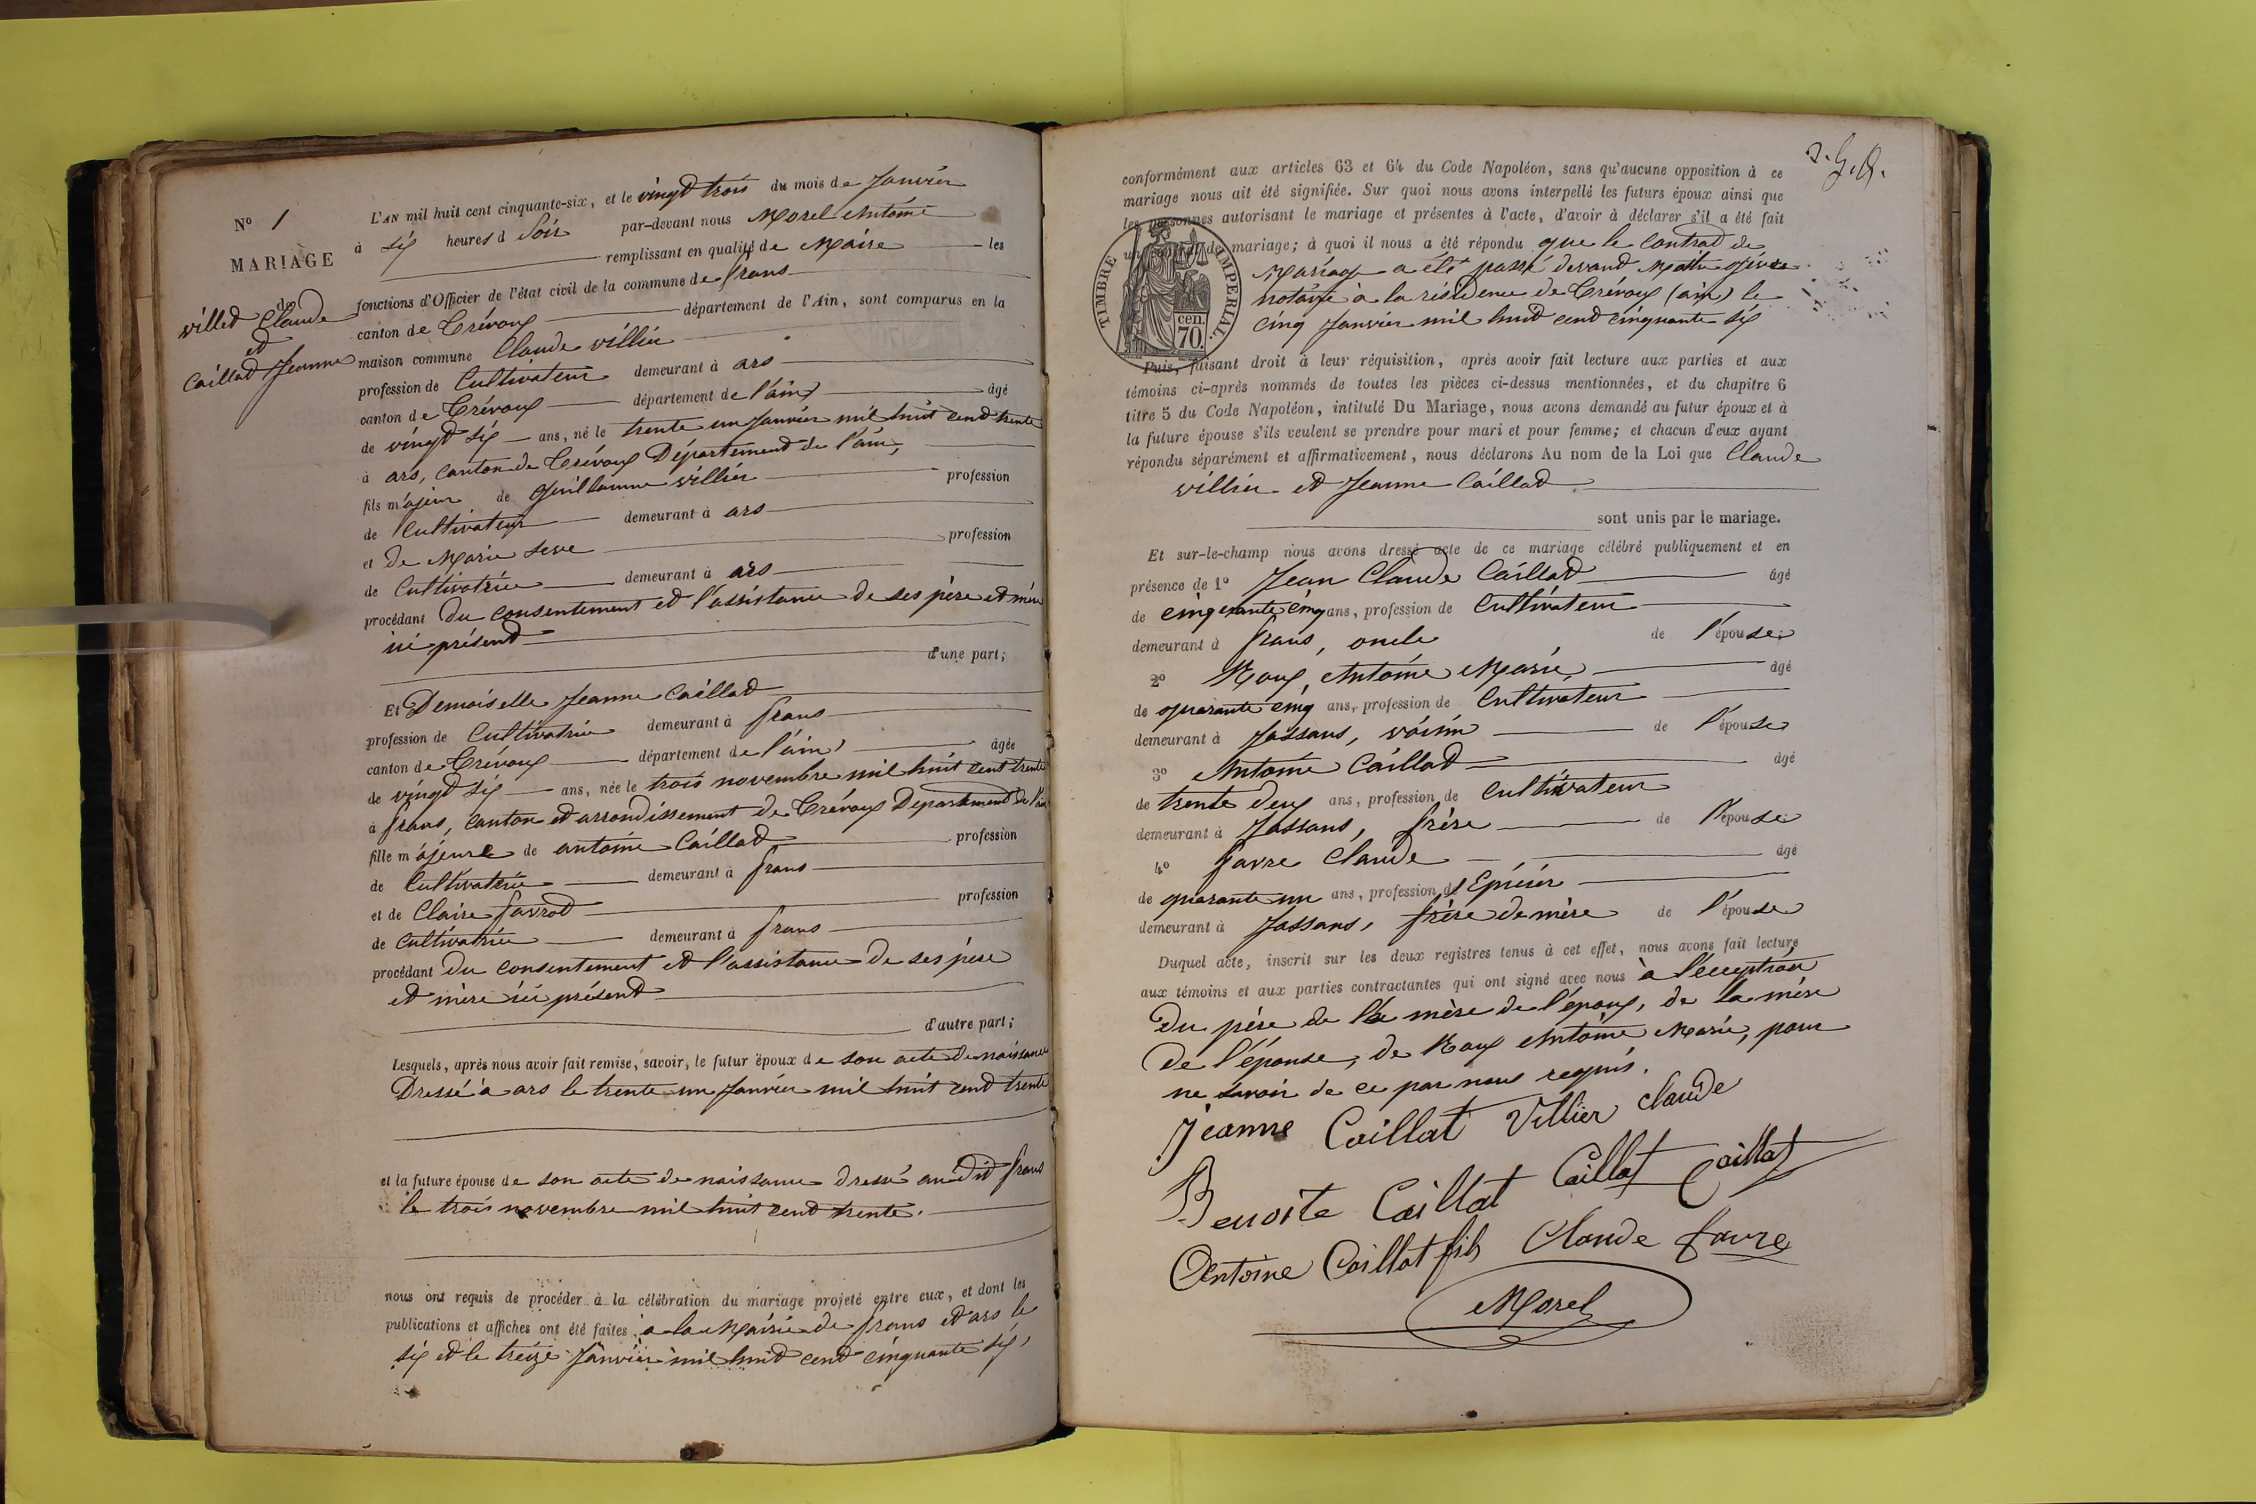 No 1
MARIAGE
de
Villier Claude
et
Caillat Jeanne
L'AN mil huit cent cinquante-six, et le vingt trois du mois de Janvier
à six heures d Soir par-devant nous Morel Antoine
remplissant en qualité de Maire les
fonctions d'Officier de l'état civil de la commune de frans
canton de Trévoux département de l'Ain, sont comparus en la
maison commune Claude villier
profession de Cultivateur demeurant à ars
canton de Trévoux département de l'ain, âgé
de vingt six ans, né le trente un Janvier mil huit cent trente
à ars, canton de Trévoux Département de l'ain,
fils majeur de Guillaume villier profession
de Cultivateur demeurant à ars
et de Marie Seve profession
de Cultivatrice demeurant à ars
procédant Du consentement et l'assistance de ses père et mère
ici présent
d'une part;
Et Demoiselle Jeanne Caillat
profession de Cultivatrice demeurant à frans
canton de Trévoux département de l'ain, âgée
de vingt six ans, née le trois novembre mil huit cent trente
à frans, canton et arrondissement de Trévoux Département de l'ain
fille majeure de antoine Caillat profession
de Cultivatrice demeurant à frans
et de Claire favrot profession
de Cultivatrice demeurant à frans
procédant Du consentement et l'assistance de ses père
et mère ici présent
d'autre part;
Lesquels, après nous avoir fait remise, savoir, le futur époux de son acte de naissance
Dressé à ars le trente un Janvier mil huit cent trente
et la future épouse de son acte de naissance dressé audit frans
le trois novembre mil huit cent trente.
nous ont requis de procéder à la célébration du mariage projeté entre eux, et dont les
publications et affiches ont été faites à la Mairie de frans et ars le
six et le treize Janvier mil huit cent cinquante six,
conformément aux articles 63 et 64 du Code Napoléon, sans qu'aucune opposition à ce
mariage nous ait été signifiée. Sur quoi nous avons interpellé les futurs époux ainsi que
les personnes autorisant le mariage et présentes à l'acte, d'avoir à déclarer s'il a été fait
un contrat de mariage; à quoi il nous a été répondu que le contrat de
Mariage a été passé devant Maitre
notaire à la résidence de Trévoux (ain) le
cinq Janvier mil huit cent cinquante six
TIMBRE IMPERIAL.
cen.
70.
Puis, faisant droit à leur réquisition, après avoir fait lecture aux parties et aux
témoins ci-après nommés de toutes les pièces ci-dessus mentionnées, et du chapitre 6
titre 5 du Code Napoléon, intitulé Du Mariage, nous avons demandé au futur époux et à
la future épouse s'ils veulent se prendre pour mari et pour femme; et chacun d'eux ayant
répondu séparément et affirmativement, nous déclarons Au nom de la Loi que Claude
villier et Jeanne Caillat
sont unis par le mariage.
Et sur-le-champ nous avons dressé acte de ce mariage célébré publiquement et en
présence de 1o Jean Claude Caillat âgé
de cinquante cinq ans, profession de Cultivateur
demeurant à frans, oncle de l'épouse
2o Roux Antoine Marie, âgé
de quarante cinq ans, profession de Cultivateur
demeurant à Jassans, voisin de l'épouse
3o Antoine Caillat âgé
de trente deux ans, profession de Cultivateur
demeurant à Jassans, frère de l'épouse
4o favre Claude âgé
de quarante un ans, profession d'Epicier
demeurant à Jassans, frère de mère de l'épouse
Duquel acte, inscrit sur les deux registres tenus à cet effet, nous avons fait lecture
aux témoins et aux parties contractantes qui ont signé avec nous à l'éxception
Du père de la mère de l'époux, de la mère
de l'épouse, de Roux Antoine Marie, pour
ne savoir de ce par nous requis.
Jeanne Caillat Villier claude
Benoite Caillat Caillat Caillat
Antoine Caillat fils Claude favre
Morel